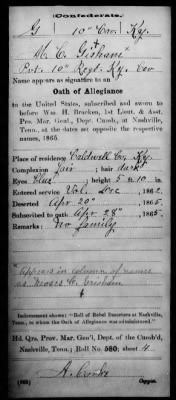 (Confederate.)
G 10" Cav. Ky.
M. C. Gisham
Pvt. 10" Regt. Ky. Cav
Name appears as signature to an
Oath of Allegiance
to the United States, subscribed and sworn to
before Wm. H. Bracken, 1st Lieut. & Asst.
Pro. Mar. Genl., Dept. Cumb., at Nashville,
Tenn., at the dates set opposite the respective
names, 1865.
Place of residence Caldwell Co, Ky.
Complexion fair; hair dark
eyes blue; height 5 ft. 10 in.
Entered service Vol. Dec, 1862.
Deserted Apr. 20", 1865.
Subscribed to oath Apr. 28", 1865.
Remarks: No family
Appears in column of names
as Moses C. Grisham
Indorsement shows: "Roll of Rebel Deserters at Nashville,
Tenn., to whom the Oath of Allegiance was administered."
Hd. Qrs. Prov. Mar. Gen'l, Dept. of the Cumb'd,
Nashville, Tenn.; Roll No. 580; sheet 4
Copyist.